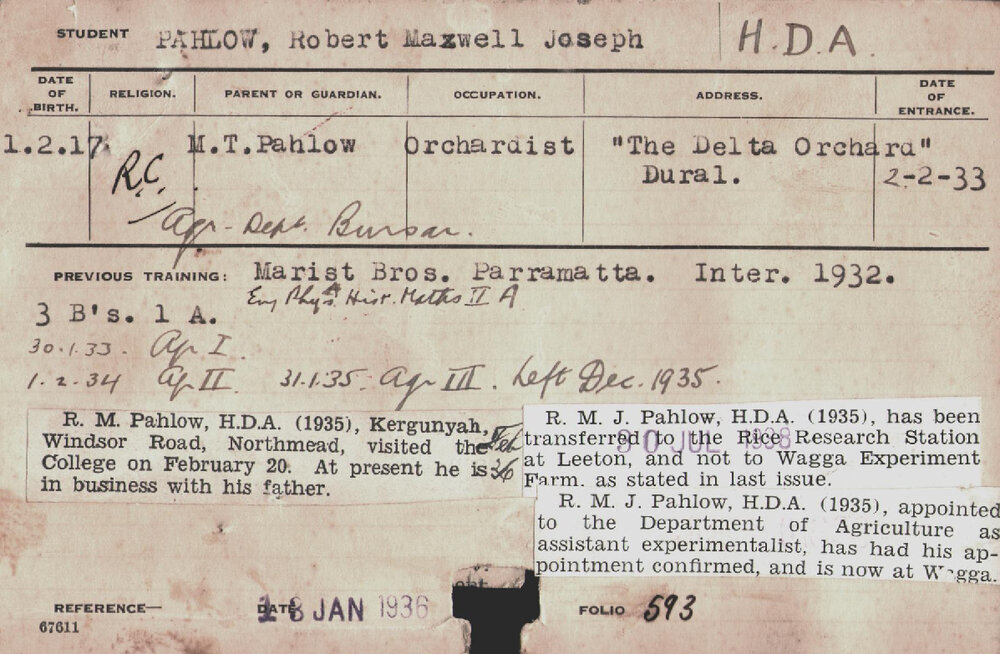 STUDENT PAHLOW, Robert Maxwell Joseph H.D.A.
DATE OF BIRTH. RELIGION. PARENT OR GUARDIAN. OCCUPATION. ADDRESS. DATE OF ENTRANCE.
1.2.17 R.C. M.T.Pahlow Orchardist "The Delta Orchard"
Dural. 2-2-33
Agr-Dept. Bursar.
PREVIOUS TRAINING: Marist Bros. Parramatta. Inter. 1932.
Eng Hist. Maths II A
3 B's. 1 A.
30.1.33. Agr I.
1.2.34 Agr II. 31.1.35. Agr III. Left Dec. 1935.
R. M. Pahlow, H.D.A. (1935), Kergunyah,
Windsor Road, Northmead, visited the
College on February 20. At present he is
in business with his father.
Feb
36
R. M. J. Pahlow, H.D.A. (1935), has been
transferred to the Rice Research Station
at Leeton, and not to Wagga Experiment
Farm, as stated in last issue.
JUL
R. M. J. Pahlow, H.D.A. (1935), appointed
to the Department of Agriculture as
assistant experimentalist, has had his ap-
pointment confirmed, and is now at Wagga.
REFERENCE— DATE 18 JAN 1936 FOLIO 593
67611